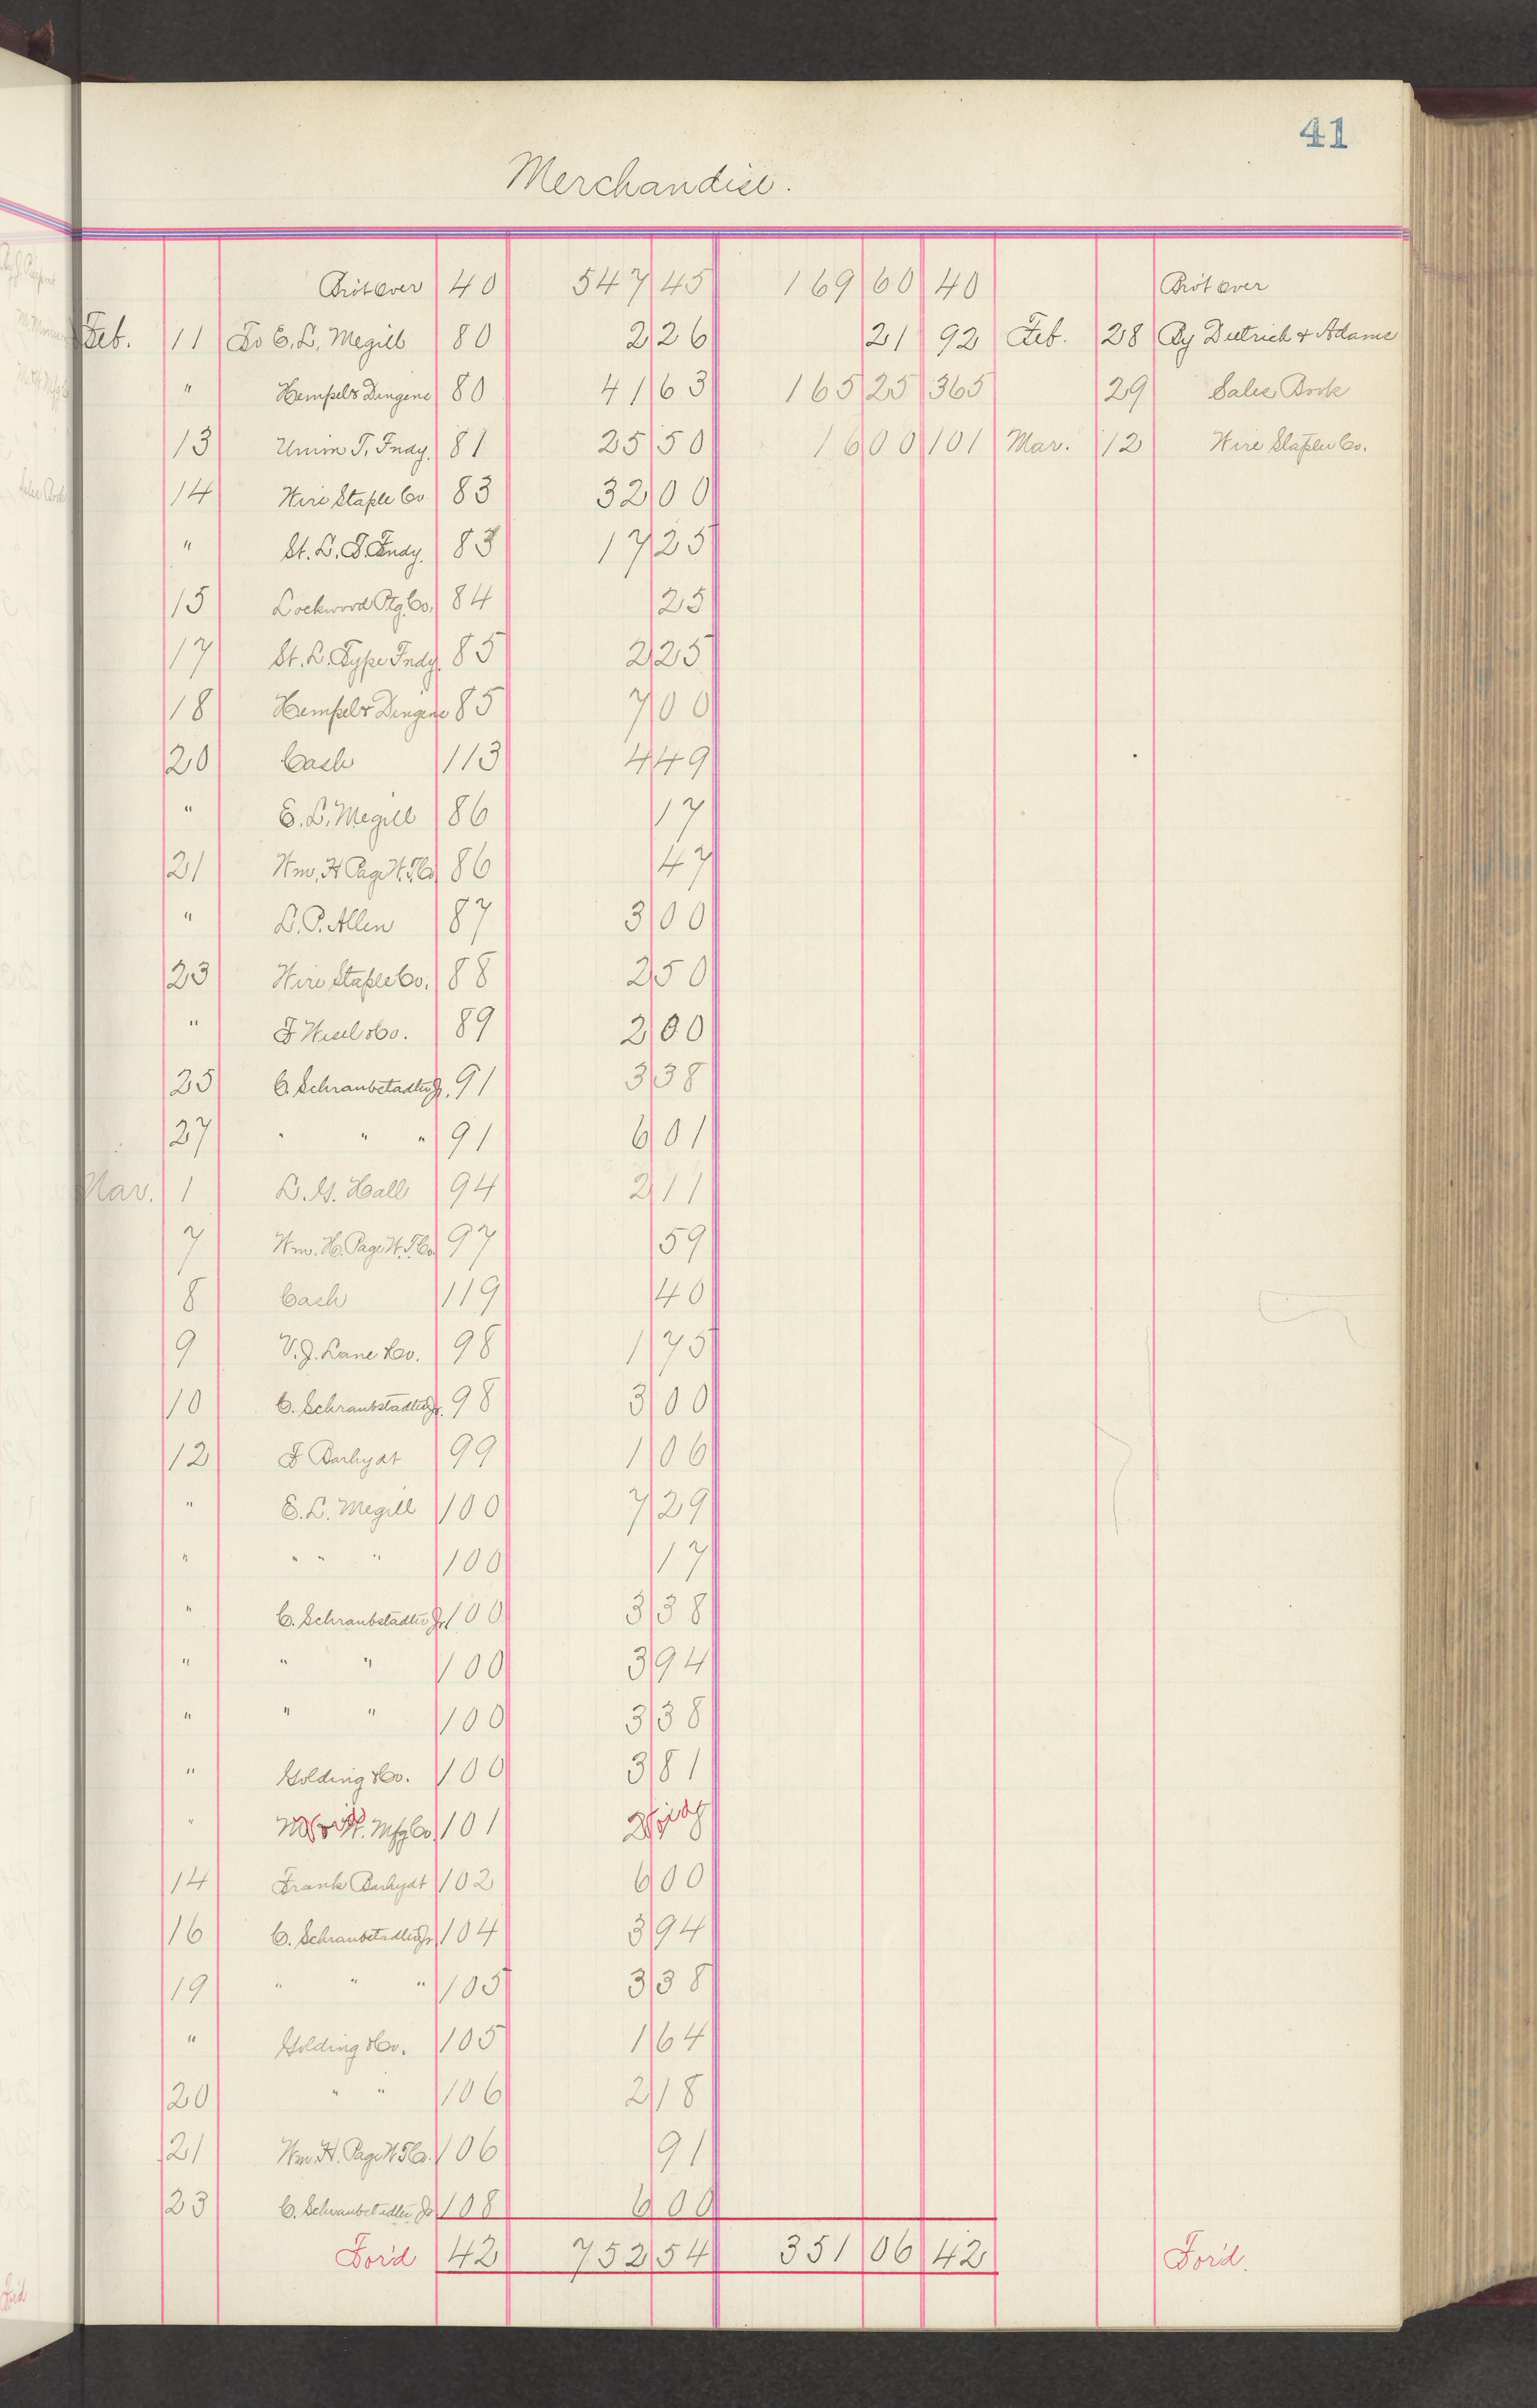 41
Merchandise.
Bro't over 40 547 45 169 60 40 Bro't over
Feb. 11 To E. L. Megill 80 2 26 21 92 Feb. 28 By Dietrich & Adams
" Hempel & Dingens 80 41 63 165 25 365 29 Sales Book
13 Union T. Fndy. 81 25 50 16 00 101 Mar. 12 Wire Staple Co.
14 Wire Staple Co 83 32 00
" St. L. T. Fndy. 83 17 25
15 Lockwood Ptg. Co. 84 25
17 St. L. Type Fndy. 85 2 25
18 Hempel & Dingens 85 7 00
20 Cash 113 4 49
" E. L. Megill 86 17
21 Wm. H Page W. T. Co 86 47
" L. P. Allen 87 3 00
23 Wire Staple Co. 88 2 50
" F Wesel & Co. 89 2 00
25 C. Schraubstadter Jr. 91 3 38
27 " " " 91 6 01
Mar. 1 L. G. Hall 94 2 11
7 Wm. H. Page W. T. Co. 97 59
8 Cash 119 40
9 V. J. Lane & Co. 98 1 75
10 C. Schraubstadter Jr. 98 3 00
12 F Barhydt 99 1 06
" E. L. Megill 100 7 29
" " " " 100 17
" C. Schraubstadter Jr. 100 3 38
" " " 100 3 94
" " " 100 3 38
" Golding & Co. 100 3 81
" Mfg Co. 101 Void
14 Frank Barhydt 102 6 00
16 C. Schraubstadter Jr 104 3 94
19 " " " 105 3 38
" Golding & Co. 105 1 64
20 " " 106 2 18
21 Wm. H. Page W T Co. 106 91
23 C. Schraubstadter Jr 108 6 00
For'd 42 752 54 351 06 42 For'd.